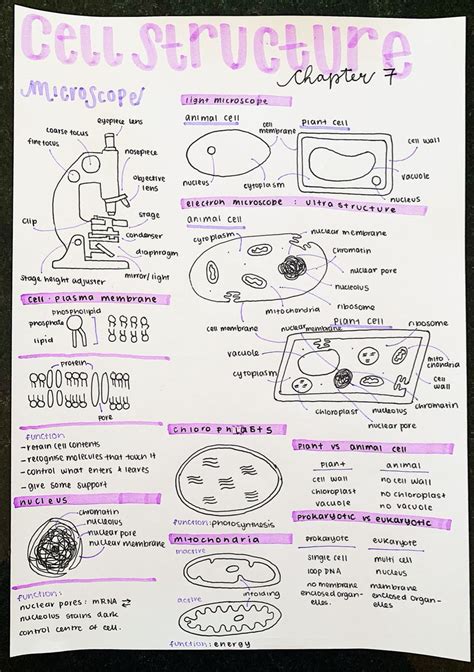 cell structure
chapter 7
microscope
eyepiece lens
coarse focus
fine focus
nosepiece
objective
lens
clip
stage
condenser
diaphragm
stage height adjuster
mirror/light
light microscope
animal cell
cell
membrane
plant cell
cell wall
vacuole
nucleus
cytoplasm
nucleus
electron microscope : ultra structure
animal cell
cytoplasm
nuclear membrane
chromatin
nuclear pore
nucleolus
ribosome
mitochondria
cell membrane
plant cell
nuclear membrane
ribosome
vacuole
cytoplasm
mito
chondria
cell
wall
chromatin
nucleolus
chloroplast
nuclear pore
cell-plasma membrane
phospholipid
phosphate
lipid
protein
pore
function
- retain cell contents
- recognise molecules that touch it
- control what enters & leaves
- give some support
nucleus
chromatin
nucleolus
nuclear pore
nuclear membrane
function:
nuclear pores: mRNA ⇄
nucleolus stains dark
control centre of cell.
chlorophlasts
function: photosynthesis
mitochondria
inactive
infolding
active
function: energy
plant vs animal cell
plant animal
cell wall no cell wall
chloroplast no chloroplast
vacuole no vacuole
prokaryotic vs eukaryotic
prokaryote eukaryote
single cell multi cell
loop DNA nucleus
no membrane membrane
enclosed organ- enclosed organ-
elles. elles